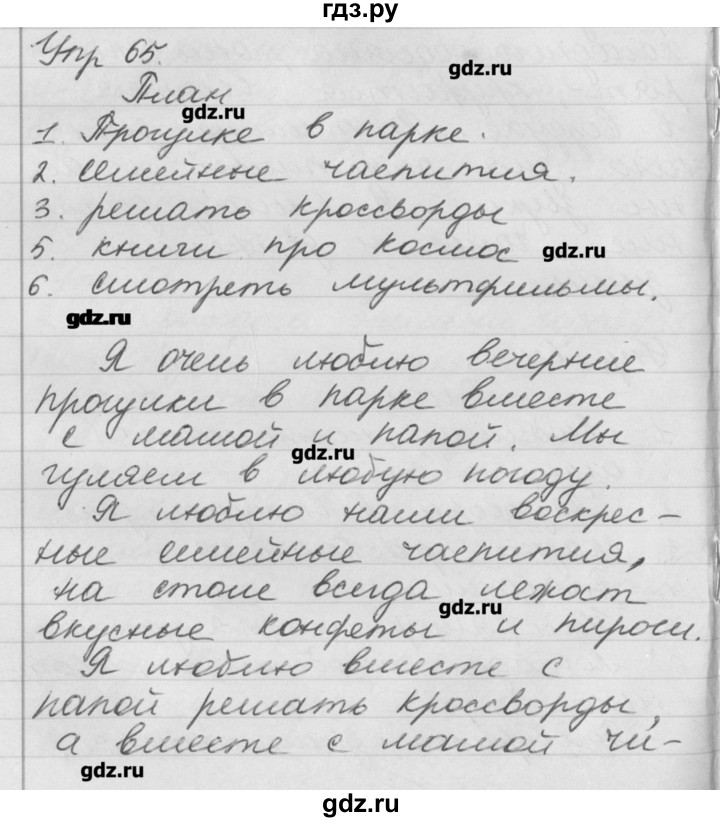 гдз.ру
Упр 65.
gdz.ru
План
gdz.ru
1. Прогулке в парке.
2. семейные чаепития.
3. решать кроссворды
5. книги про космос
gdz.ru
6. смотреть мультфильмы.
gdz.ru
Я очень люблю вечерние
прогулки в парке вместе
с мамой и папой. Мы
gdz.ru
гуляем в любую погоду.
Я люблю наши воскрес-
ные семейные чаепития,
на столе всегда лежат
gdz.ru
вкусные конфеты и пироги.
Я люблю вместе с
папой решать кроссворды,
а вместе с мамой чи-
gdz.ru
gdz.ru